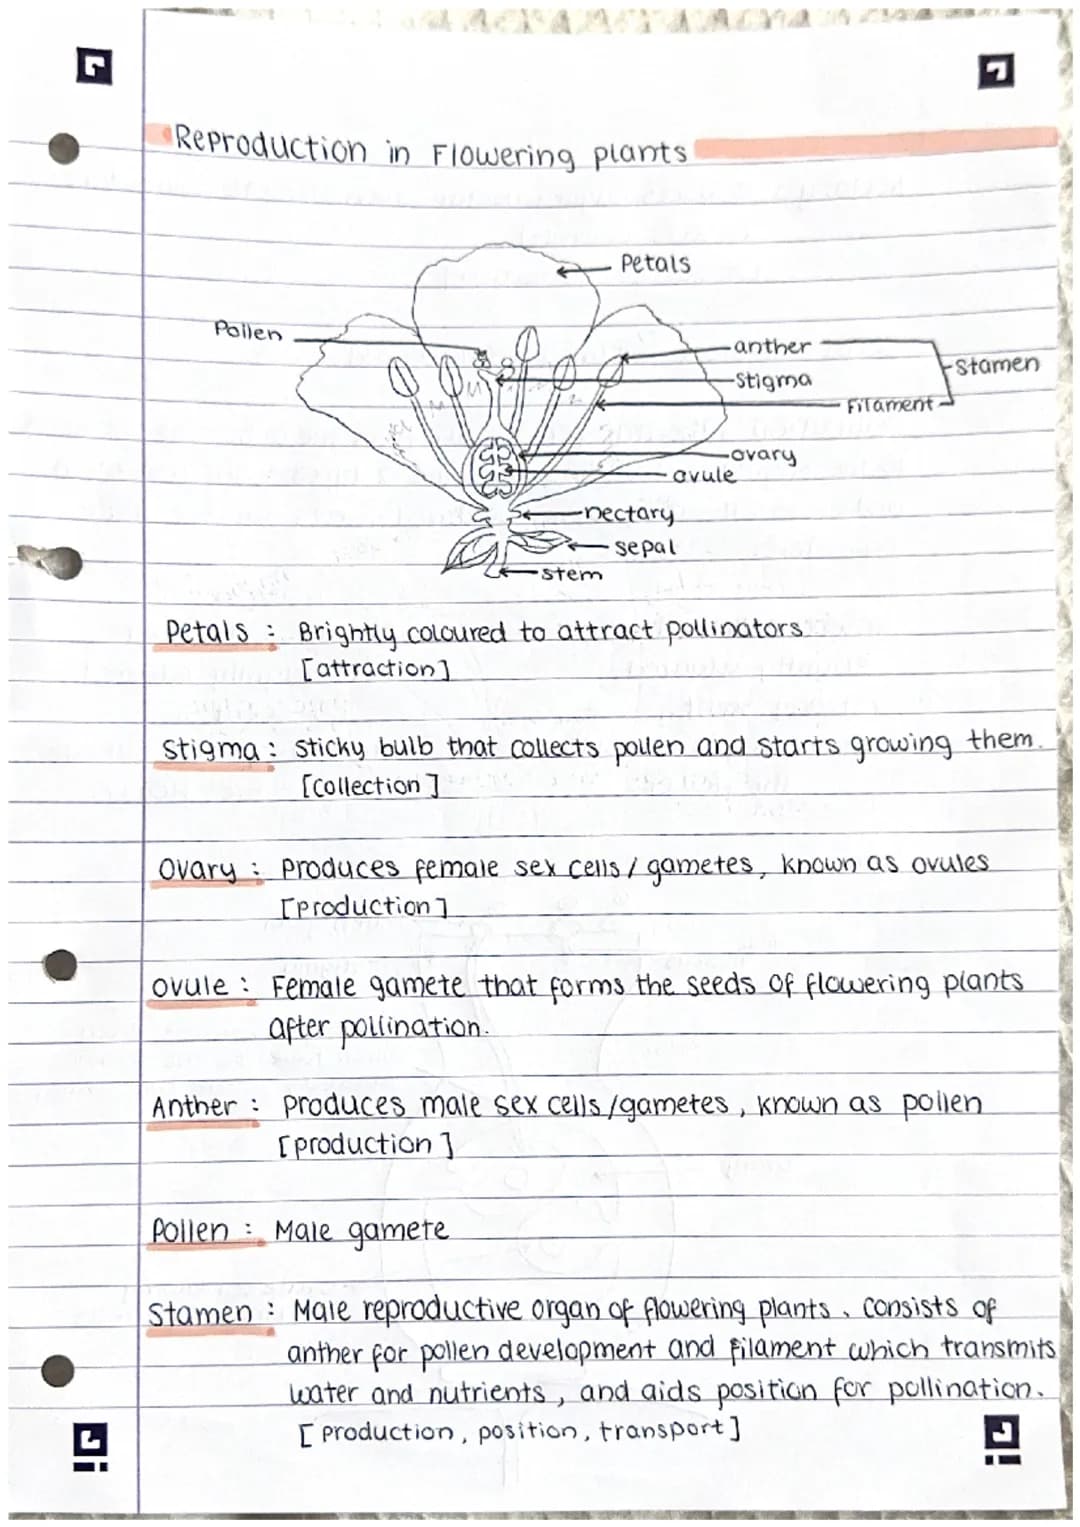 Reproduction in Flowering plants
Petals
Pollen
anther
Stigma
Stamen
Filament
ovary
ovule
nectary
sepal
stem
Petals : Brightly coloured to attract pollinators
[attraction]
Stigma : Sticky bulb that collects pollen and starts growing them.
[Collection]
Ovary : Produces female sex cells / gametes, known as ovules
[Production]
ovule : Female gamete that forms the seeds of flowering plants
after pollination.
Anther : Produces male sex cells/gametes, known as pollen
[production]
Pollen : Male gamete
Stamen : Male reproductive organ of flowering plants. Consists of
anther for pollen development and filament which transmits
water and nutrients, and aids position for pollination.
[Production, position, transport]